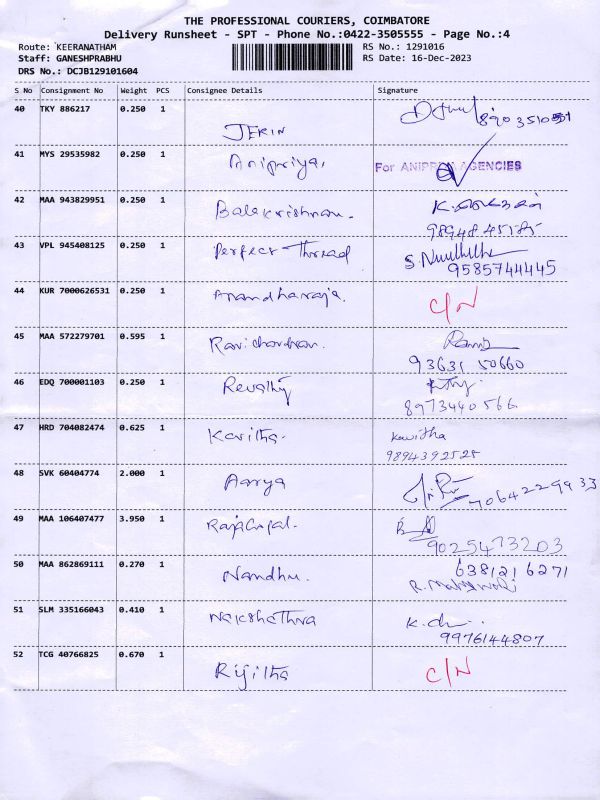 THE PROFESSIONAL COURIERS, COIMBATORE
Delivery Runsheet - SPT - Phone No.:0422-3505555 - Page No.:4
Route: KEERANATHAM RS No.: 1291016
Staff: GANESHPRABHU RS Date: 16-Dec-2023
DRS No.: DCJB129101604
S No Consignment No Weight PCS Consignee Details Signature
40 TKY 886217 0.250 1
JERIN
41 MYS 29535982 0.250 1 Anipriya,
For ANIPRIYA AGENCIES
42 MAA 943829951 0.250 1
Balakrishnan.
98948 45185
43 VPL 945408125 0.250 1 Perfect Thread
9585744445
44 KUR 7000626531 0.250 1 Anandharaja. C/N
45 MAA 572279701 0.595 1 Ravichandran.
93631 50660
46 EDQ 700001103 0.250 1 Revathy
8973440566
47 HRD 704082474 0.625 1 Kavitha. Kavitha
9894392525
48 SVK 60404774 2.000 1 Aarya
9064229933
49 MAA 106407477 3.950 1 Rajagopal.
9025473203
50 MAA 862869111 0.270 1 Nandhu. 6381216271
51 SLM 335166043 0.410 1 Nakshathra
9976144807
52 TCG 40766825 0.670 1 Rijitha C/N